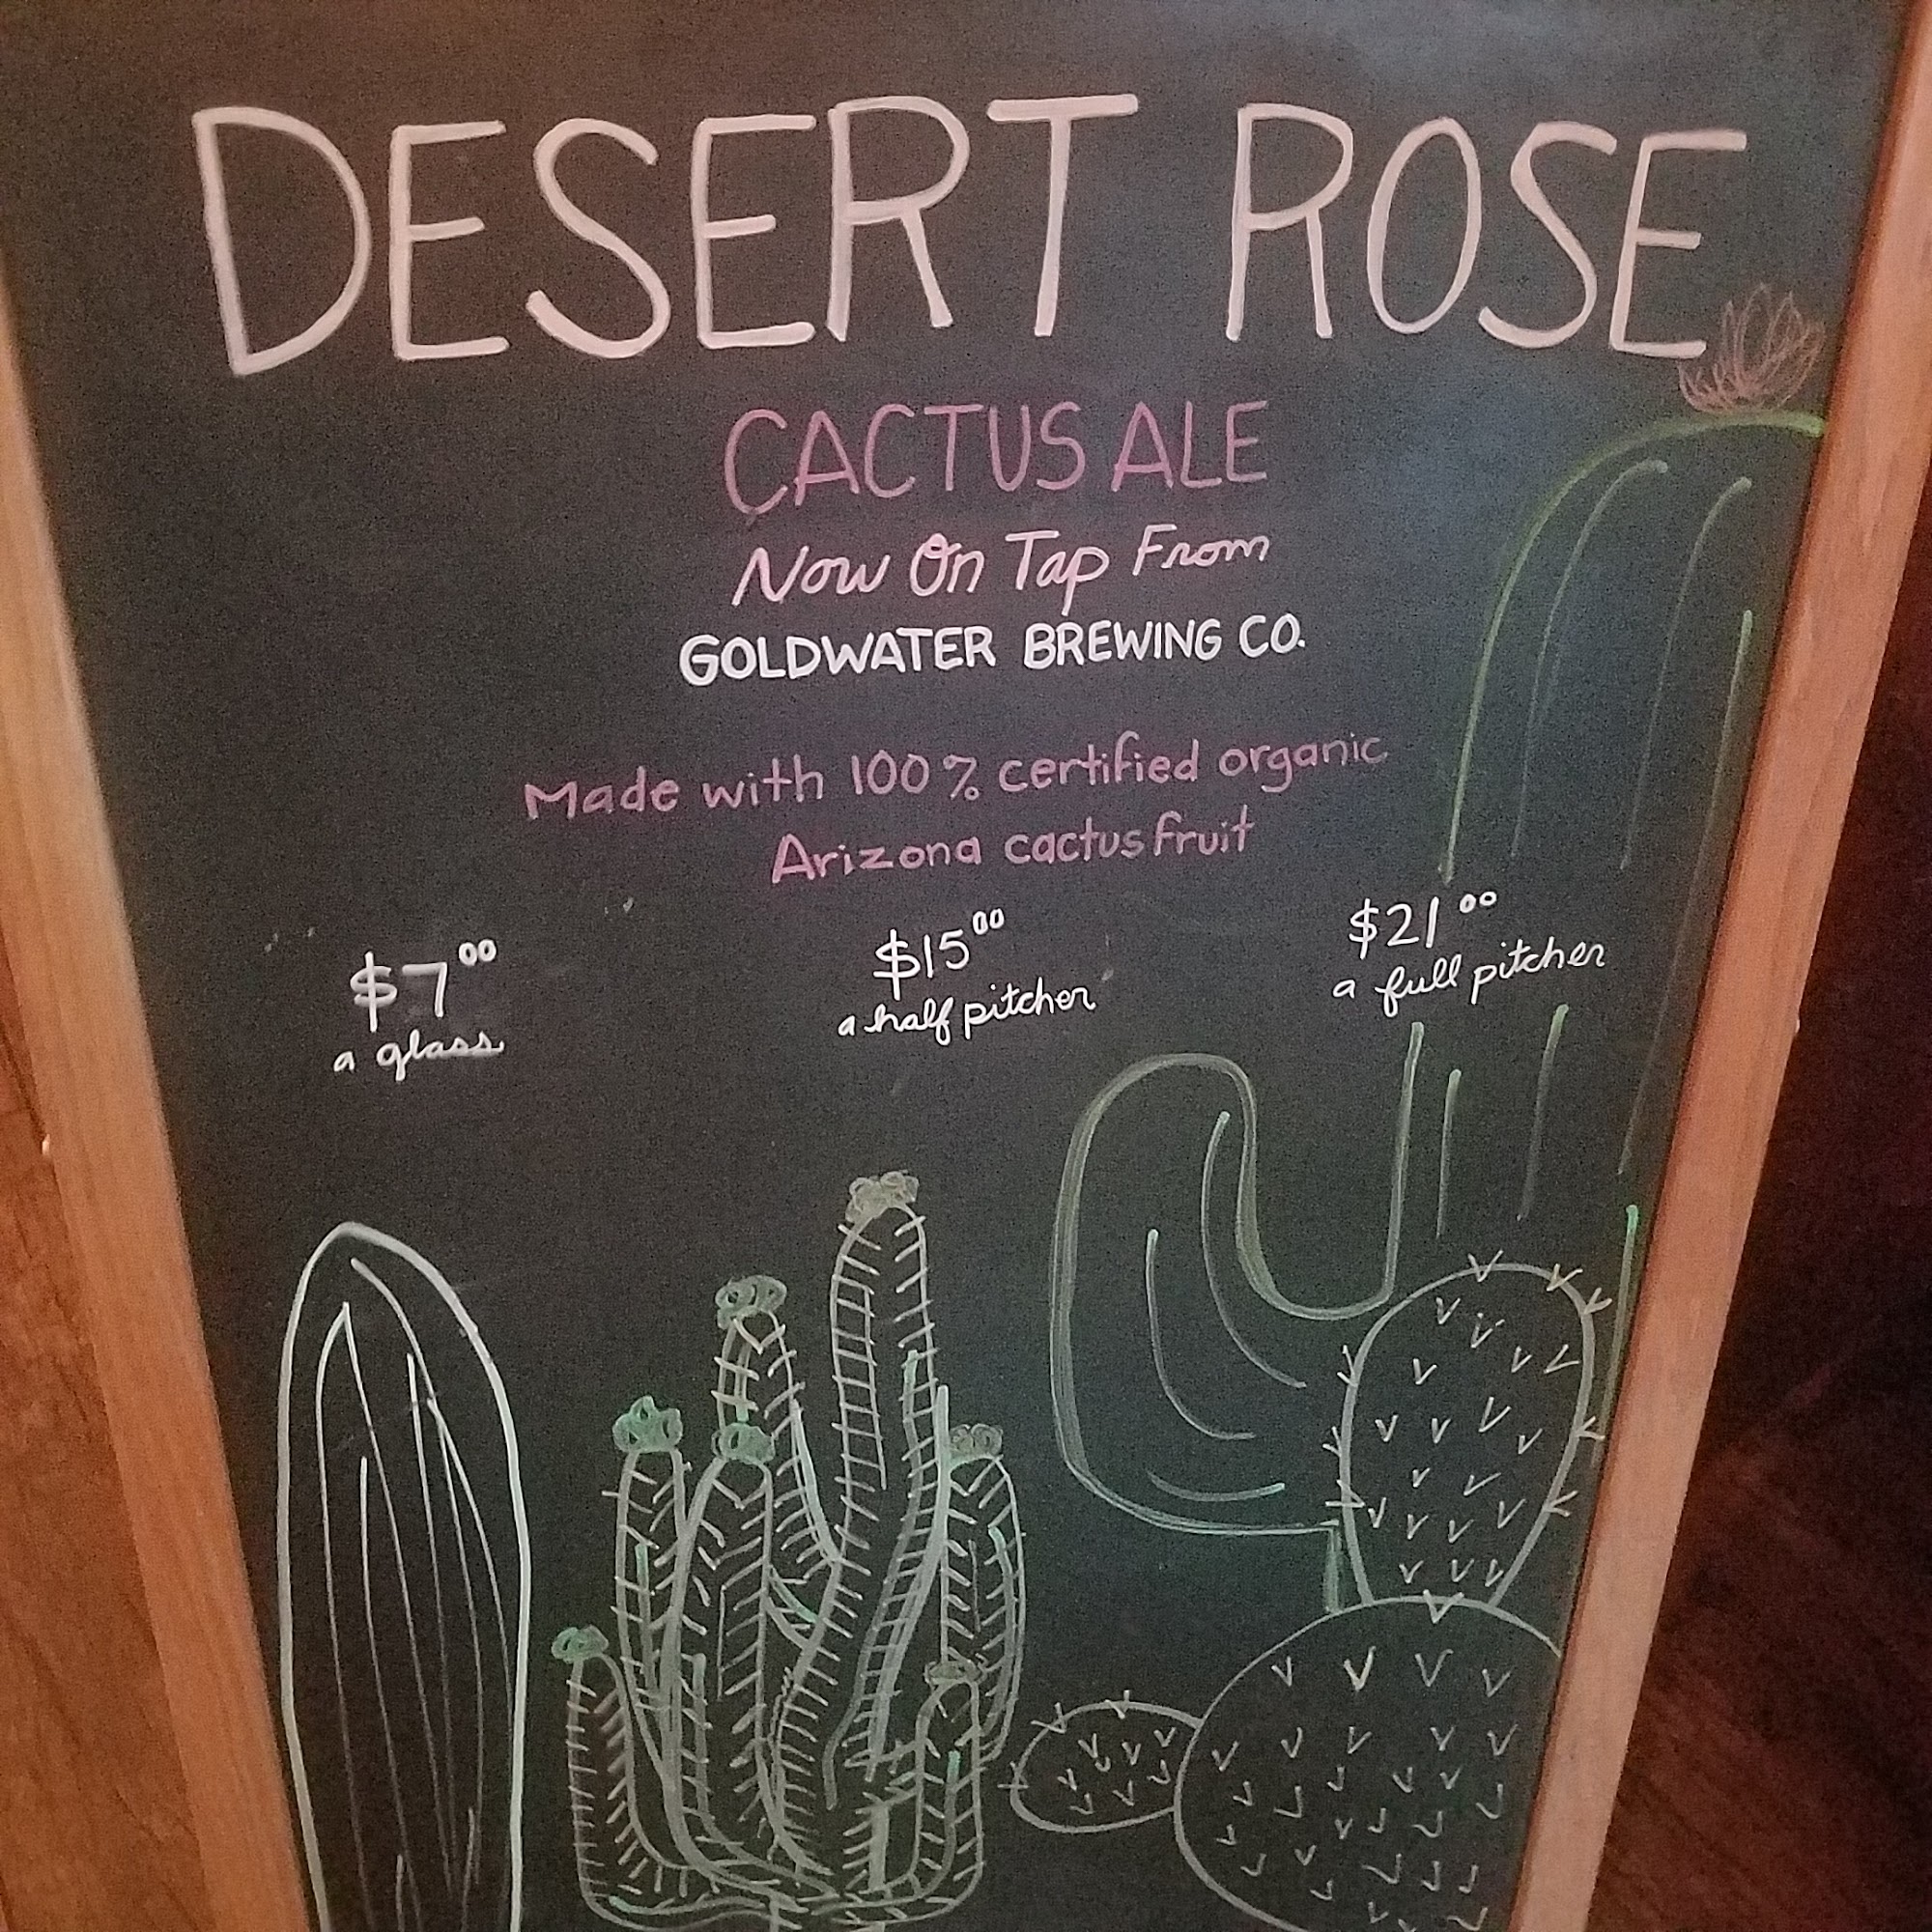 DESERT ROSE
CACTUS ALE
Now On Tap From
GOLDWATER BREWING CO.
Made with 100% certified organic
Arizona cactus fruit
$7.00
a glass
$15.00
a half pitcher
$21.00
a full pitcher